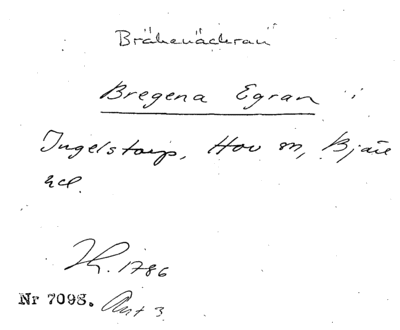 Bräkenäckran
Bregena Egran
Ingelstorp, Hov sn, Bjäre
hd.
Th. 1786
Nr 7098. Ant 3